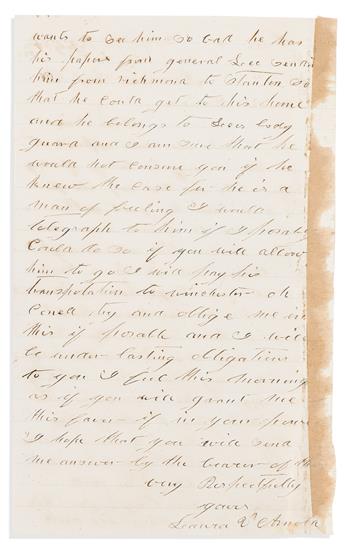 wants to see him so bad he has
his papers from general Lee sending
him from richmond to Stanton so
that he could get to his home
and he belongs to Lees body
guard and I am sure that he
would not censure you if he
knew the case for he is a
man of feeling I would
telegraph to him if I posably
could do so if you will allow
him to go I will pay his
transportation to winchester oh
Conell try and oblige me in
this if posable and I will
be under lasting obligations
to you I feel this morning
as if you will grant me
this favor if in your power
I hope that you will send
me answer by the bearer of
very Respectfully
yours
Leaura Arnold